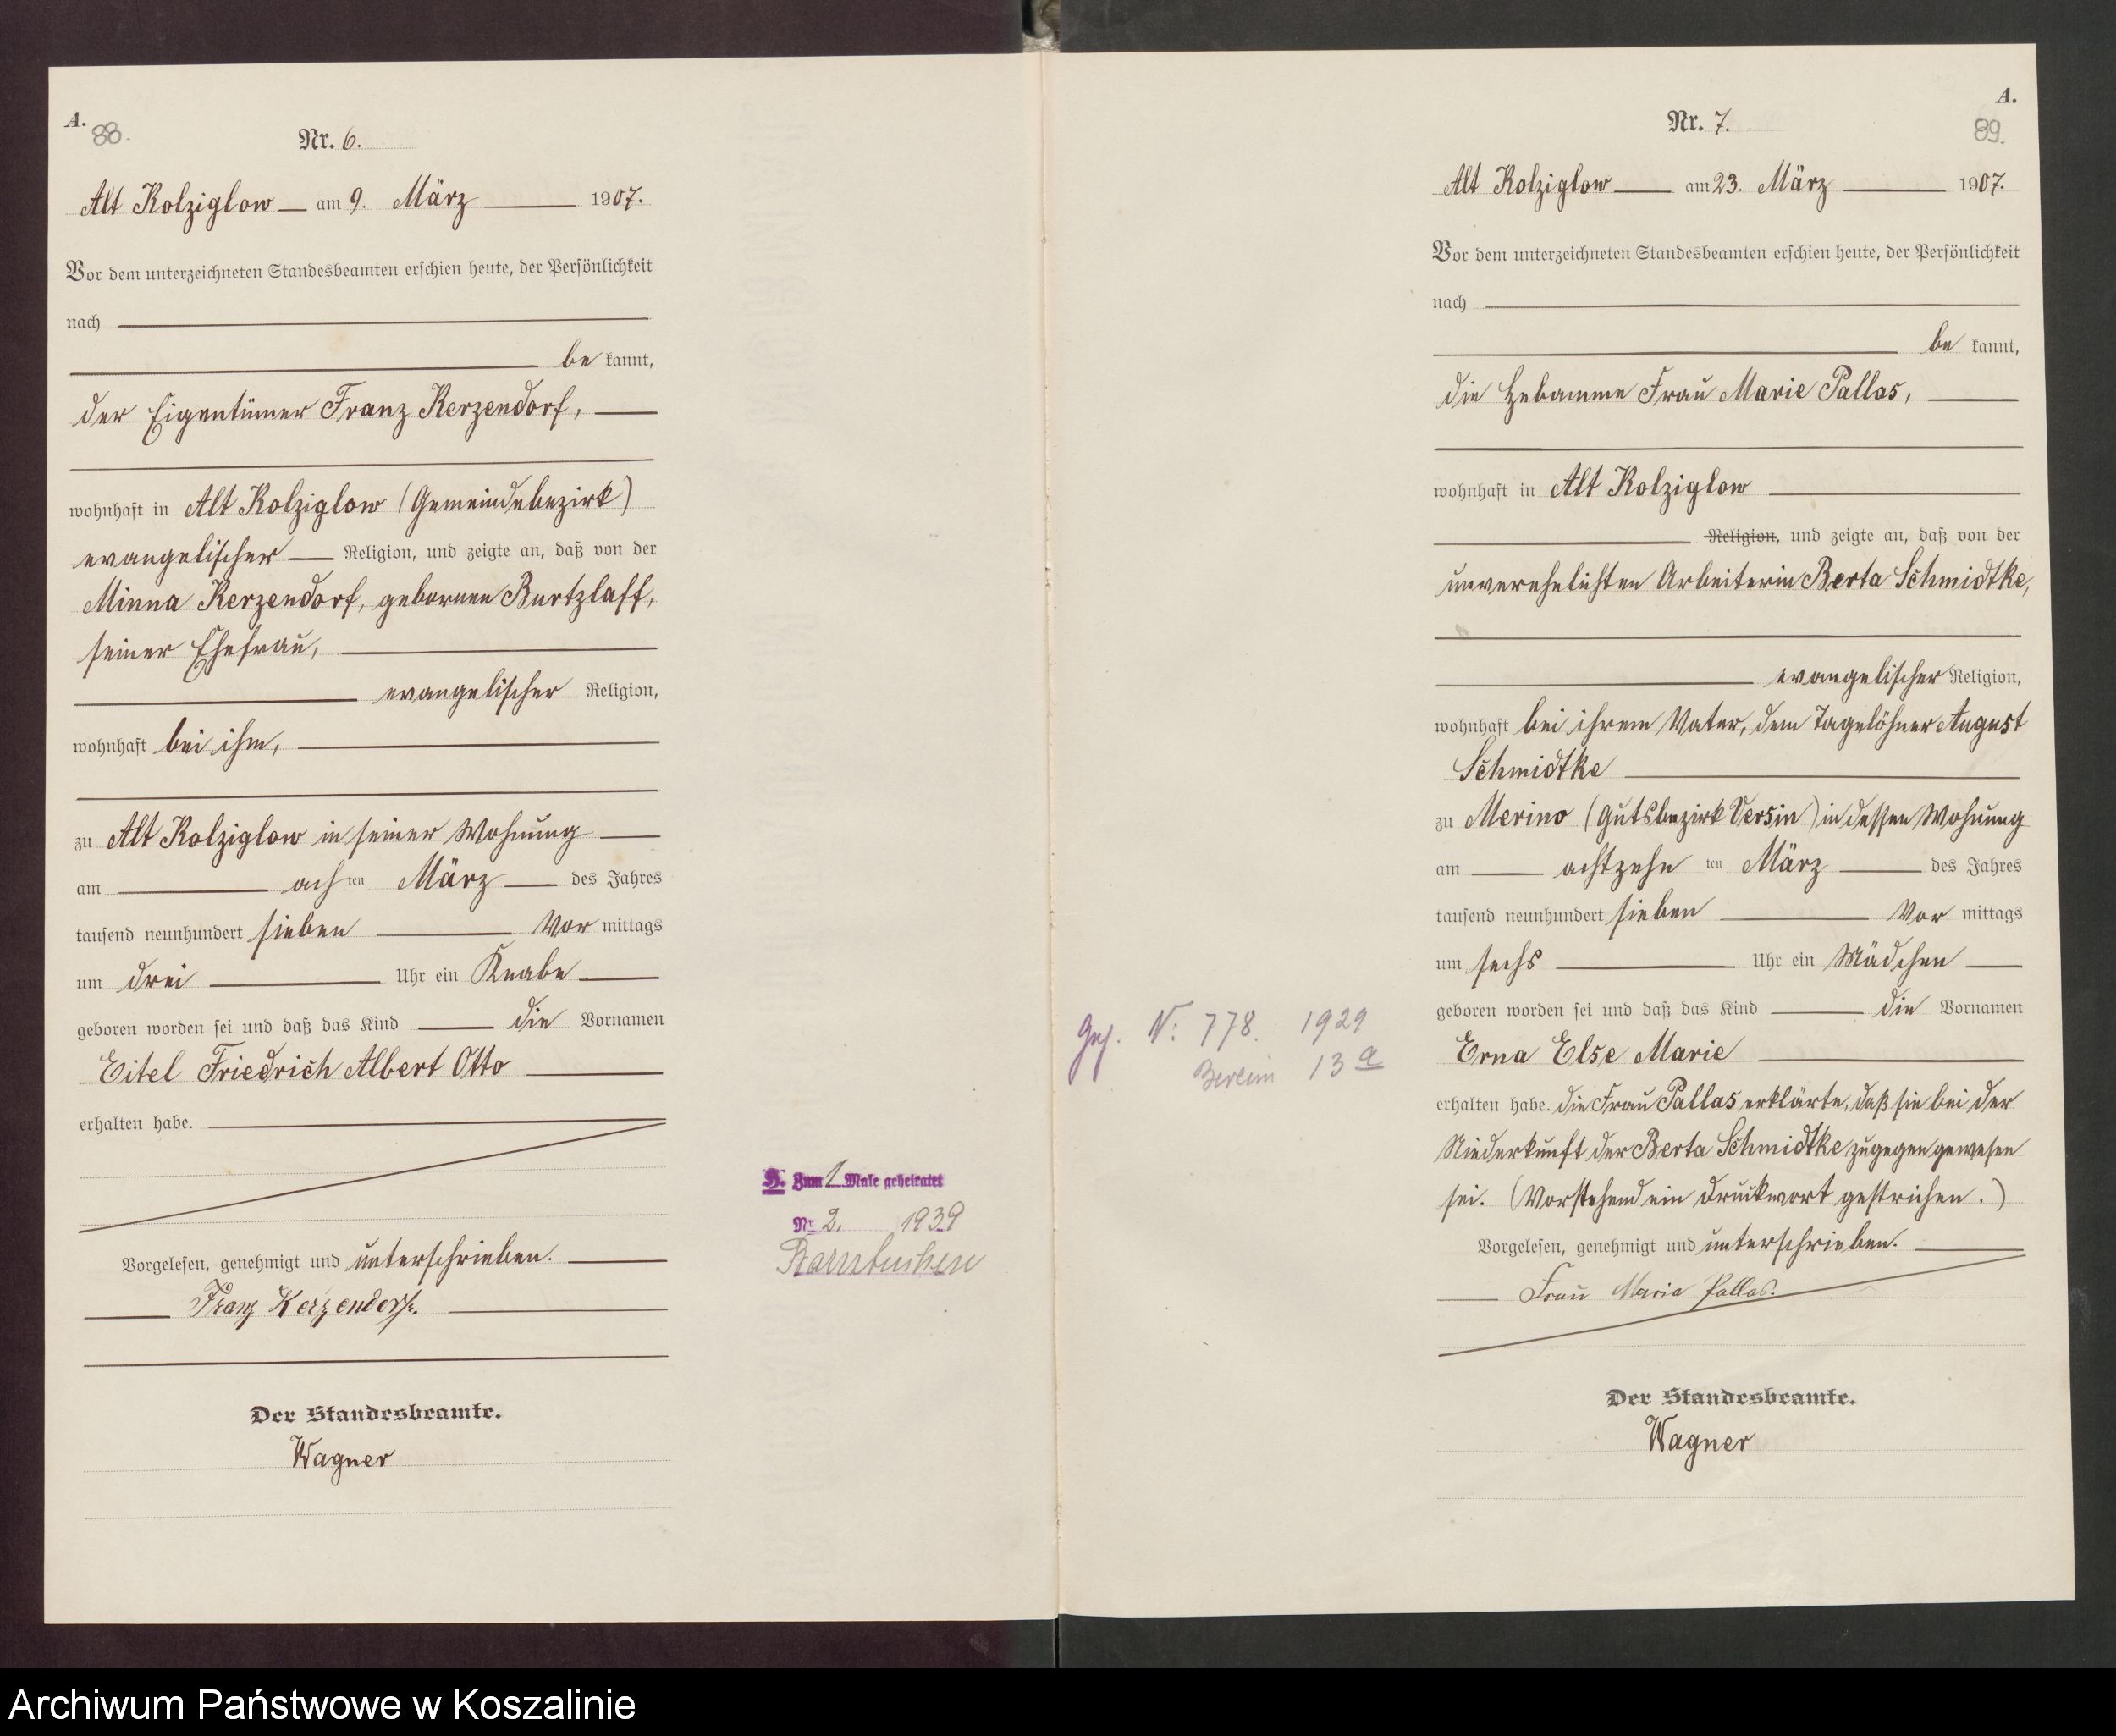 A.
88.
Nr. 6.
Alt Kolziglow am 9. März 1907.
Vor dem unterzeichneten Standesbeamten erschien heute, der Persönlichkeit
nach
be kannt,
der Eigentümer Franz Kerzendorf,
wohnhaft in Alt Kolziglow (Gemeindebezirk)
evangelischer Religion, und zeigte an, daß von der
Minna Kerzendorf, geborenen Burtzlaff,
seiner Ehefrau,
evangelischer Religion,
wohnhaft bei ihm,
zu Alt Kolziglow in seiner Wohnung
am ach ten März des Jahres
tausend neunhundert sieben Vor mittags
um drei Uhr ein Knabe
geboren worden sei und daß das Kind die Vornamen
Eitel Friedrich Albert Otto
erhalten habe.
Vorgelesen, genehmigt und unterschrieben.
Franz Kerzendorf.
Der Standesbeamte.
Wagner
H. Zum 1 Male geheiratet
Nr 2. 1939
A.
89.
Nr. 7.
Alt Kolziglow am 23. März 1907.
Vor dem unterzeichneten Standesbeamten erschien heute, der Persönlichkeit
nach
be kannt,
die Hebamme Frau Marie Pallas,
wohnhaft in Alt Kolziglow
Religion, und zeigte an, daß von der
unverehelichten Arbeiterin Berta Schmidtke,
evangelischer Religion,
wohnhaft bei ihrem Vater, dem Tagelöhner August
Schmidtke
zu Merino (Gutsbezirk Versin) in dessen Wohnung
am achtzehn ten März des Jahres
tausend neunhundert sieben Vor mittags
um sechs Uhr ein Mädchen
geboren worden sei und daß das Kind die Vornamen
Erna Else Marie
erhalten habe. Die Frau Pallas erklärte, daß sie bei der
Niederkunft der Berta Schmidtke zugegen gewesen
sei. (Vorstehend ein Druckwort gestrichen.)
Vorgelesen, genehmigt und unterschrieben.
Frau Maria Pallas.
Der Standesbeamte.
Wagner
N: 778. 1929
Berlin 13 a
Archiwum Państwowe w Koszalinie